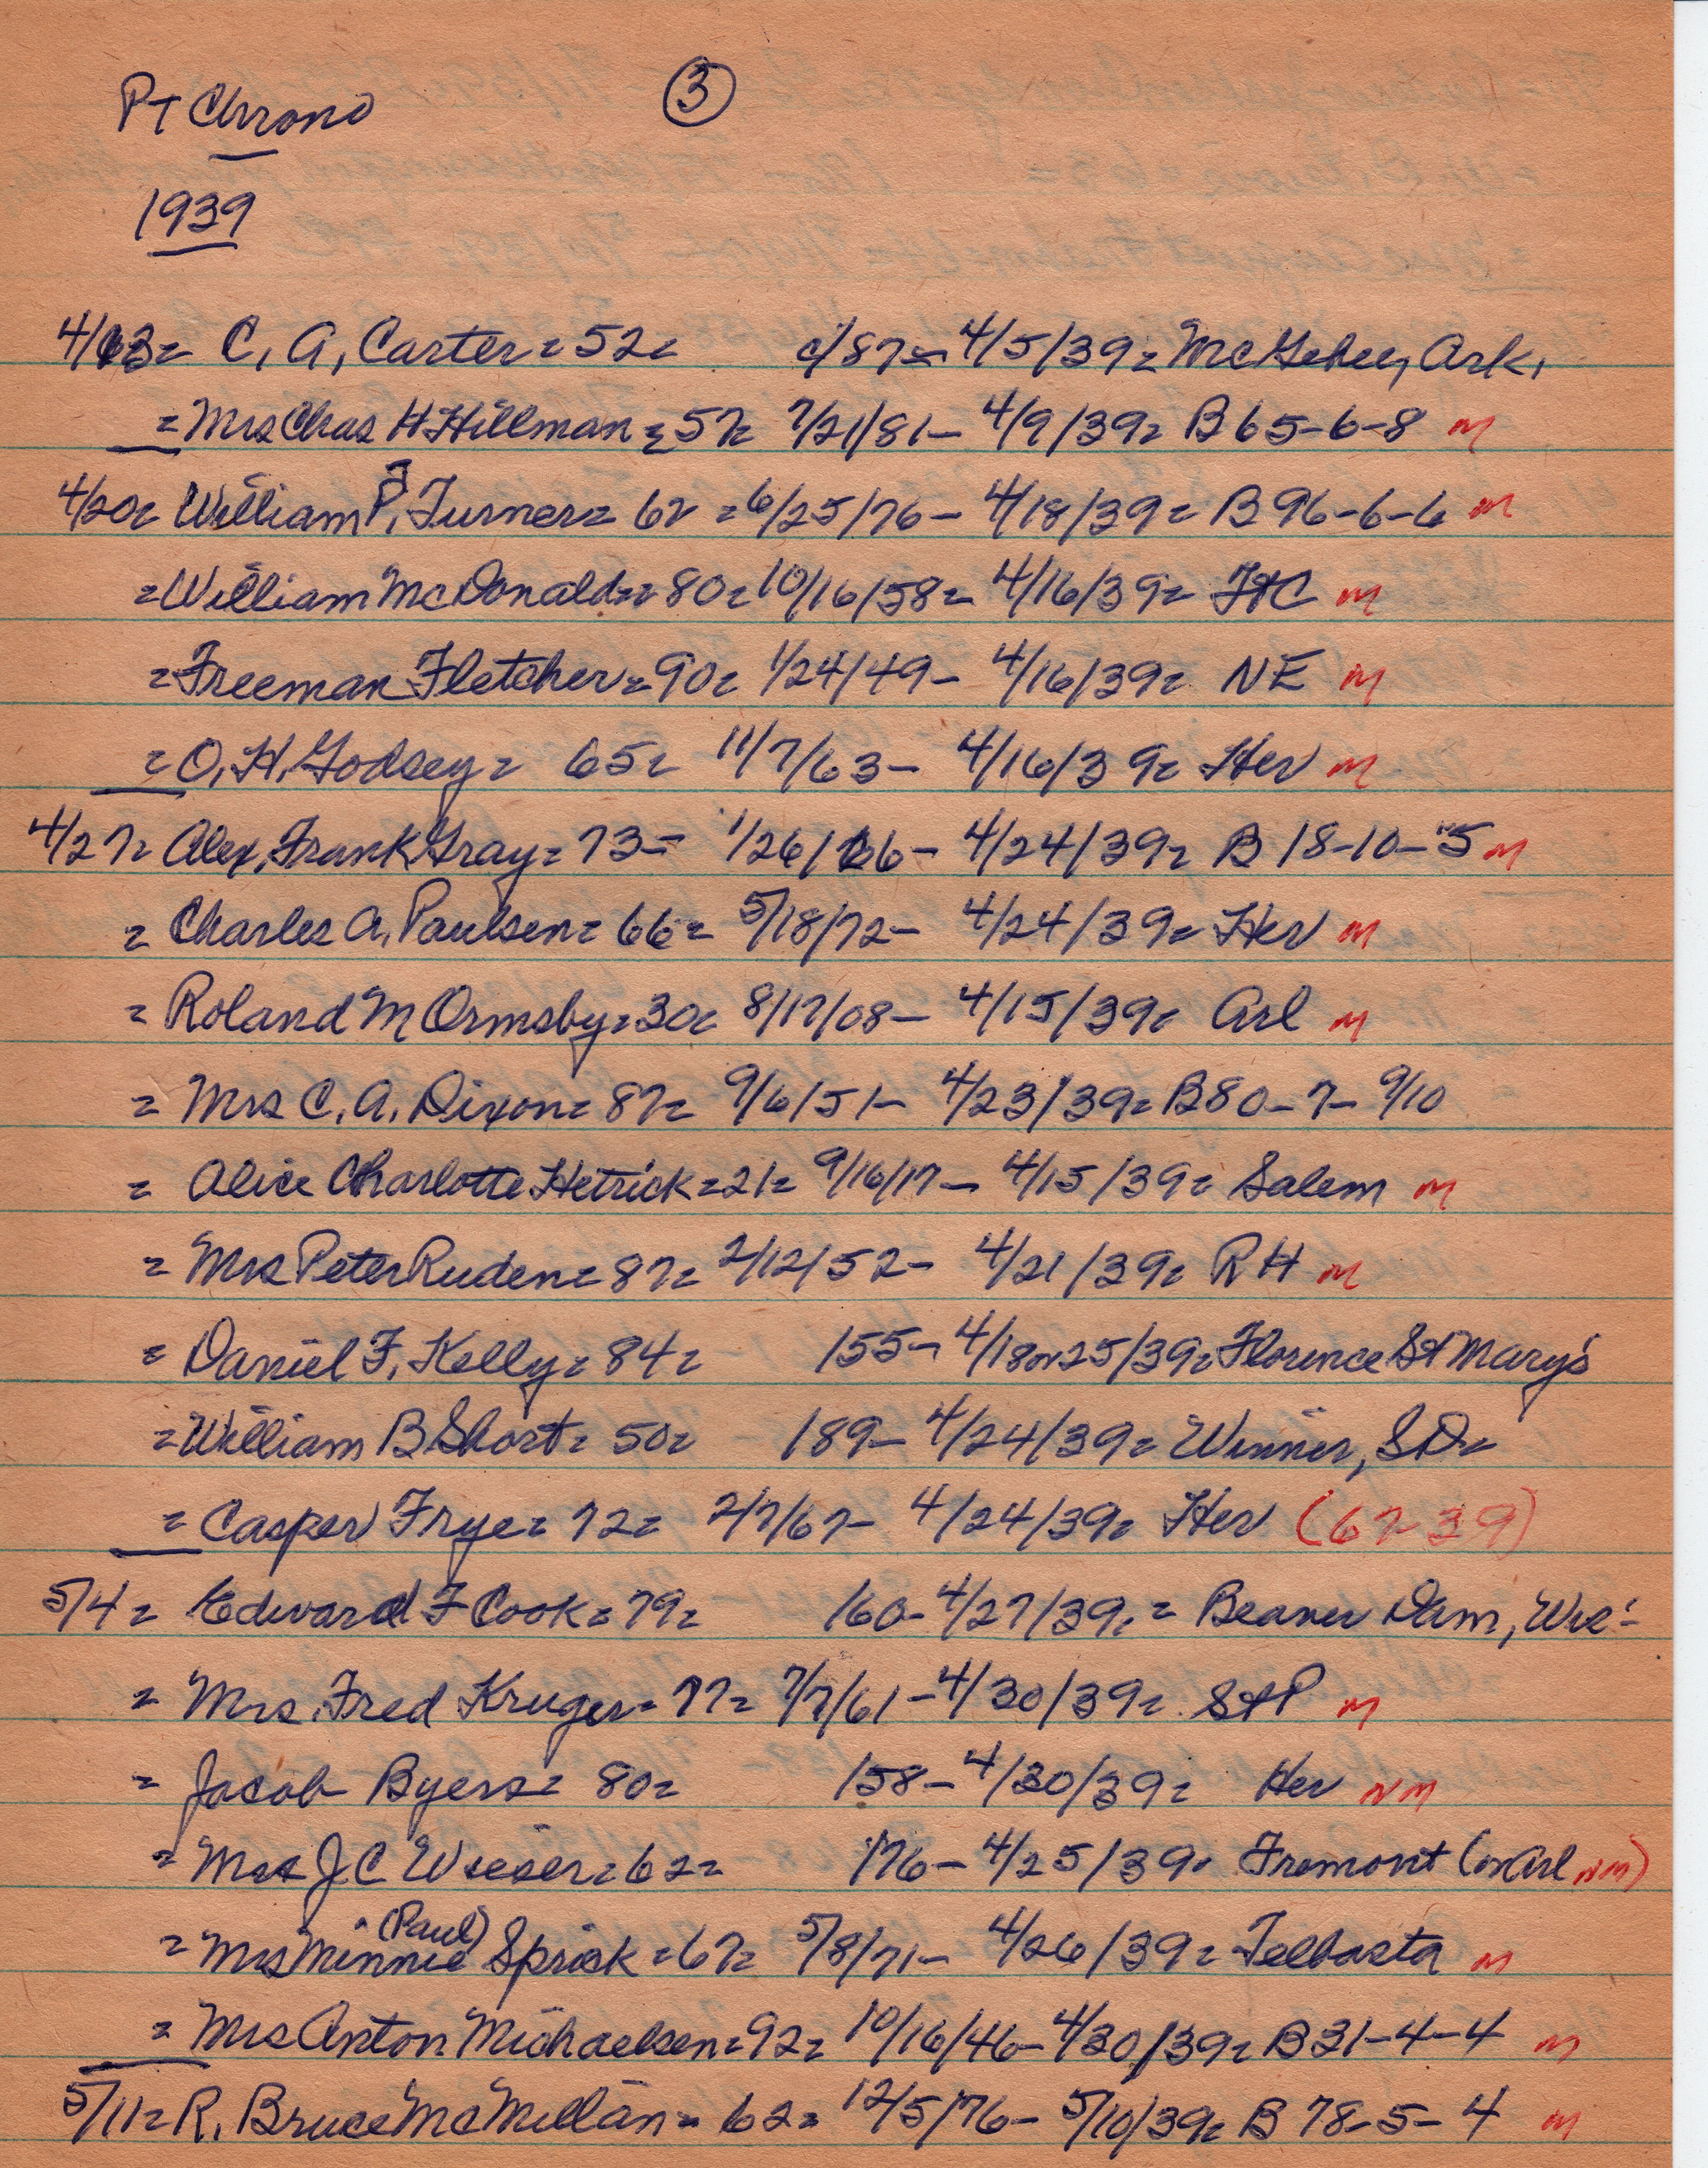 Pt Chrono ③
1939
4/13= C. A. Carter= 52= c/87- 4/5/39= McGehee, Ark.
= Mrs Chas H Hillman= 57= 7/21/81- 4/9/39= B 65-6-8 M
4/20= William P. J Turner= 62 = 6/25/76- 4/18/39= B 96-6-6 M
= William McDonald= 80= 10/16/58= 4/16/39= FtC M
= Freeman Fletcher= 90= 1/24/49- 4/16/39= NE M
= O. H. Godsey= 65= 11/7/63- 4/16/39= Her M
4/27= Alex. Frank Gray= 73- 1/26/66- 4/24/39= B 18-10-5 M
= Charles A. Paulsen= 66= 5/18/72- 4/24/39= Her M
= Roland M Ormsby= 30= 8/17/08- 4/15/39= Arl M
= Mrs C. A. Dixon= 87= 9/6/51- 4/23/39= B 80-7-9/10
= Alice Charlotte Hetrick= 21= 9/16/17- 4/15/39= Salem M
= Mrs Peter Ruden= 87= 2/12/52- 4/21/39= RH M
= Daniel F. Kelly= 84= 155- 4/18or25/39= Florence St Mary's
= William B Short= 50= 189- 4/24/39= Winner, SD=
= Casper Frye= 72= 2/7/67- 4/24/39= Her (67-39)
5/4= Edward F Cook= 79= 160- 4/27/39. = Beaver Dam, Wis-
= Mrs. Fred Kruger= 77= 7/7/61- 4/30/39= StP M
= Jacob Byers= 80= 158- 4/30/39= Her NM
= Mrs J C Wieser= 62= 176- 4/25/39. Fremont (or Arl NM)
= Mrs Minnie (Paul) Sprick= 67= 5/8/71- 4/26/39= Telbasta M
= Mrs Anton Michaelsen= 92= 10/16/46- 4/30/39= B 31-4-4 M
5/11= R. Bruce McMillan= 62= 12/5/76- 5/10/39= B 78-5-4 M